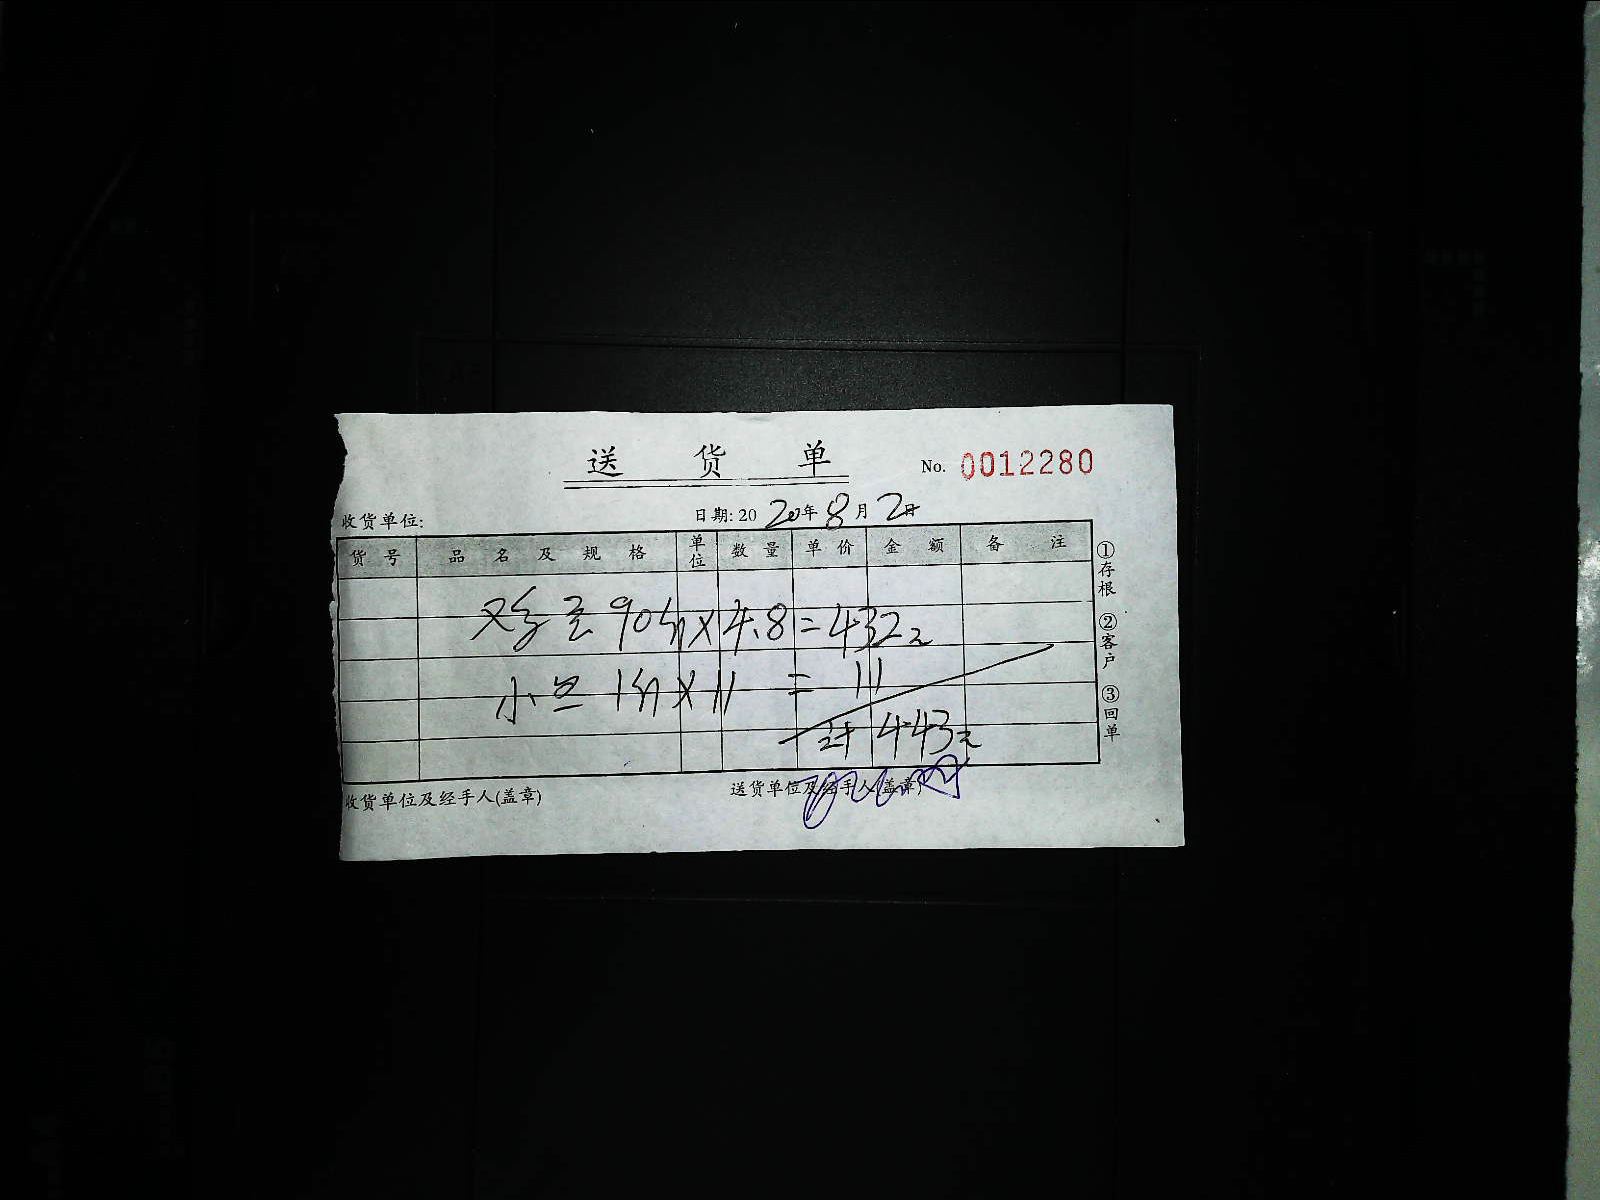 送货单 No. 0012280
收货单位: 日期: 2020年8月2日
货号 品名及规格 单位 数量 单价 金额 备注
鸡蛋 90个 X 4.8 = 432元
小 1 X 11 = 11
计 443元
收货单位及经手人(盖章) 送货单位及经手人(盖章)
①存根 ②客户 ③回单